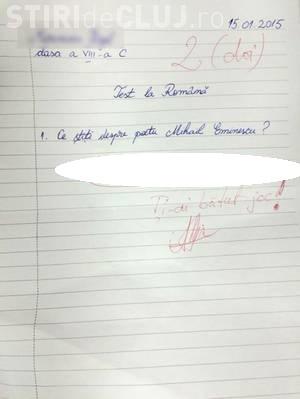 STIRIdeCLUJ.ro
15.01.2015
clasa a VIII-a C
2 (doi)
Test la Română
1. Ce știți despre poetu Mihail Eminescu?
Ți-ai bătut joc!